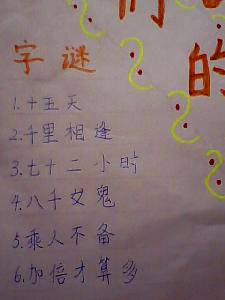 们
的
字谜
1.十五天
2.千里相逢
3.七十二小时
4.八千女鬼
5.乘人不备
6.加倍才算多